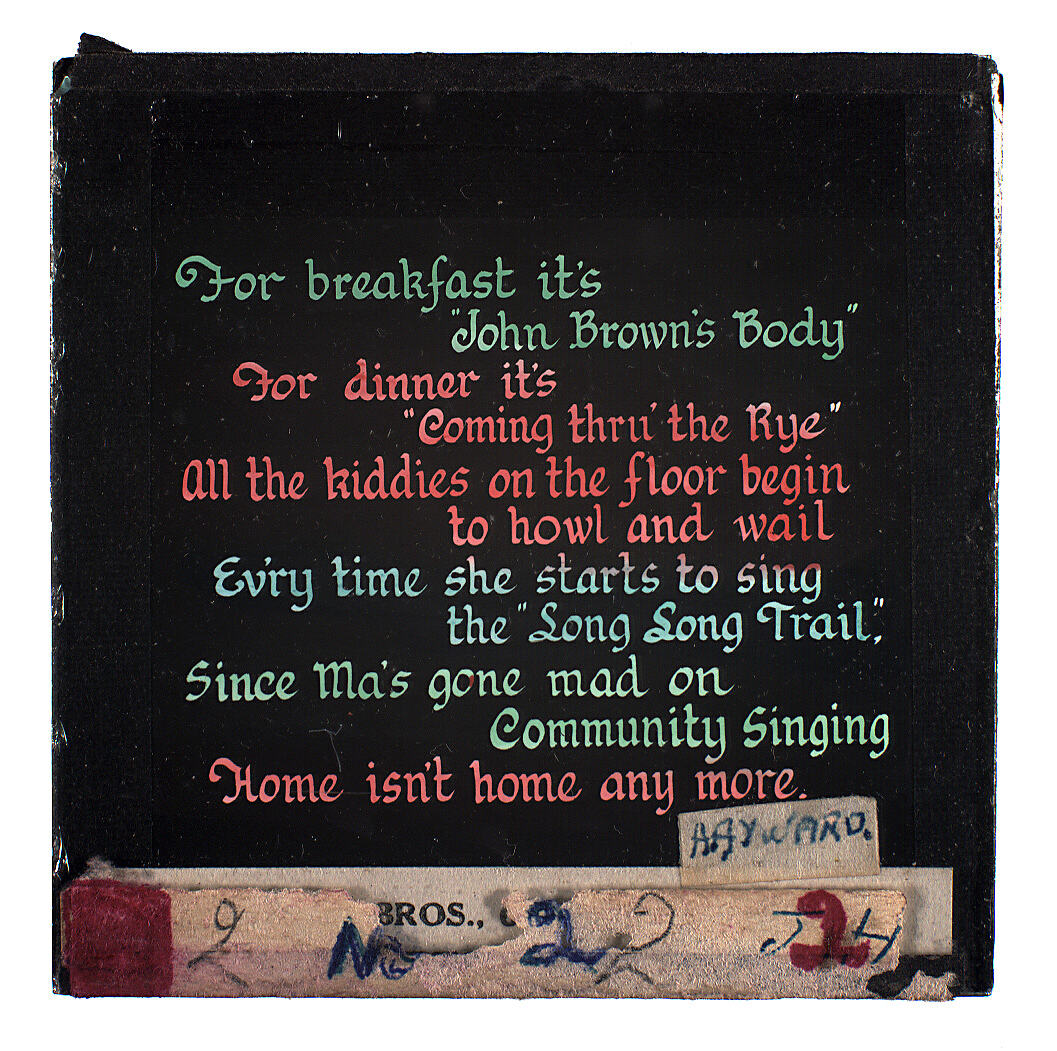 For breakfast it's
"John Brown's Body"
For dinner it's
"Coming thru' the Rye"
All the kiddies on the floor begin
to howl and wail
Ev'ry time she starts to sing
the "Long Long Trail",
Since Ma's gone mad on
Community Singing
Home isn't home any more.
HAYWARD.
BROS.,
2 No 2 2 2